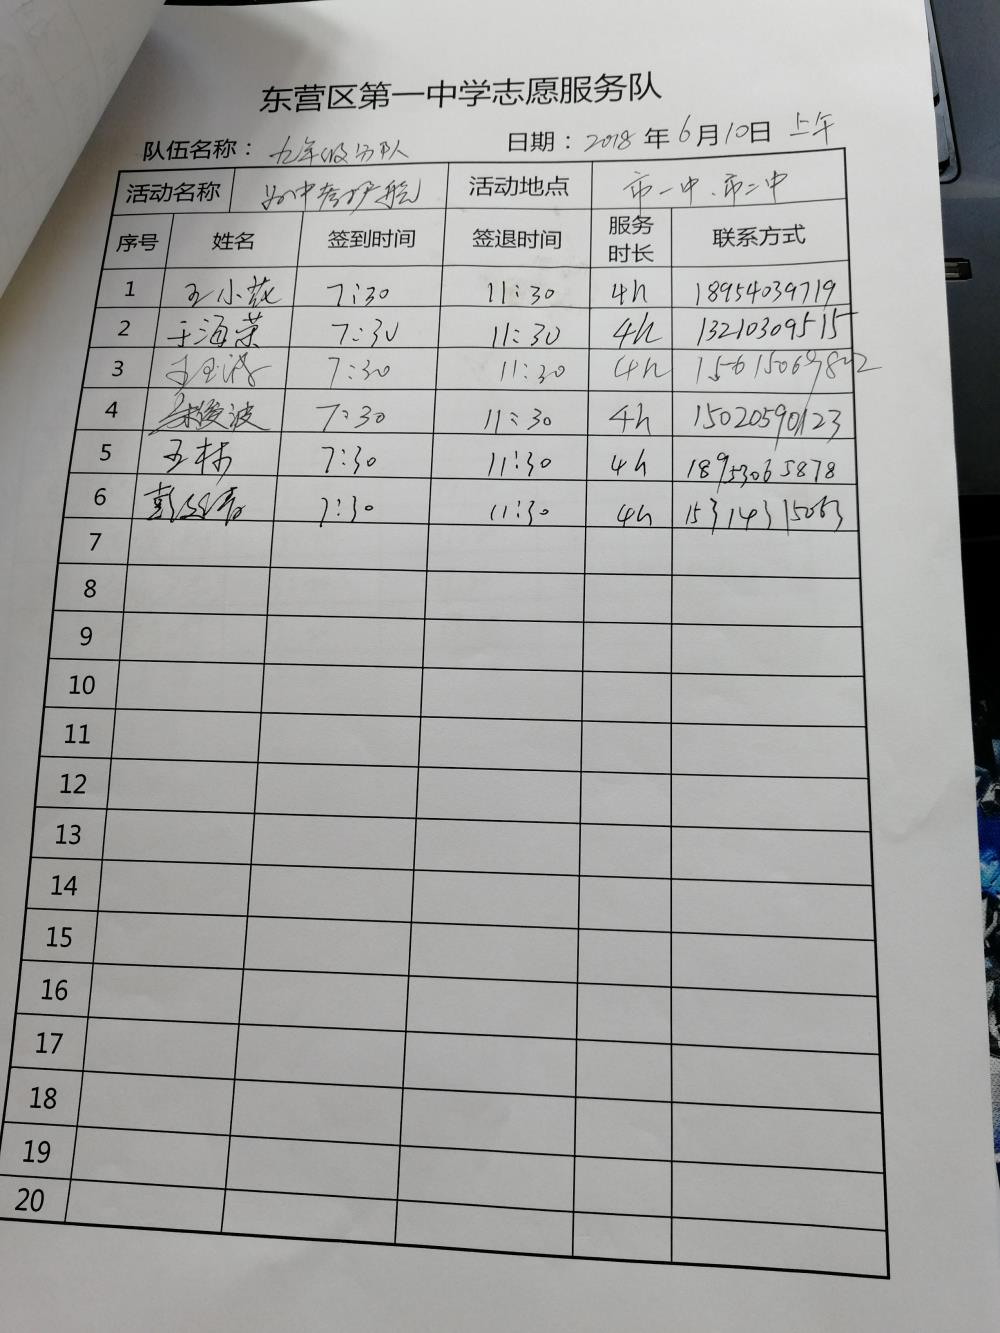 东营区第一中学志愿服务队
队伍名称：九年级分队 日期：2018年6月10日 上午
活动名称 为中考护航 活动地点 市一中、市二中
序号 姓名 签到时间 签退时间 服务时长 联系方式
1 王小花 7:30 11:30 4h 18954039719
2 于海荣 7:30 11:30 4h 13210309515
3 7:30 11:30 4h
4 朱俊波 7:30 11:30 4h 15020590123
5 王林 7:30 11:30 4h 18953065878
6 7:30 11:30 4h 15314315063
7
8
9
10
11
12
13
14
15
16
17
18
19
20